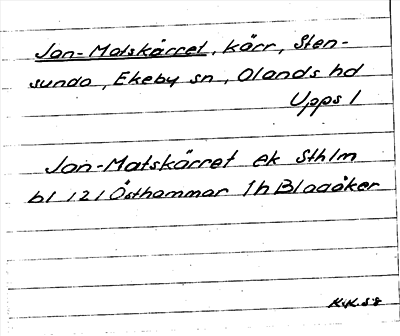 Jan-Matskärret, kärr, Sten-
sunda, Ekeby sn, Olands hd
Upps l
Jan-Matskärret ek Sthlm
bl 121 Östhammar 1h Blaaåker
K.K. 58